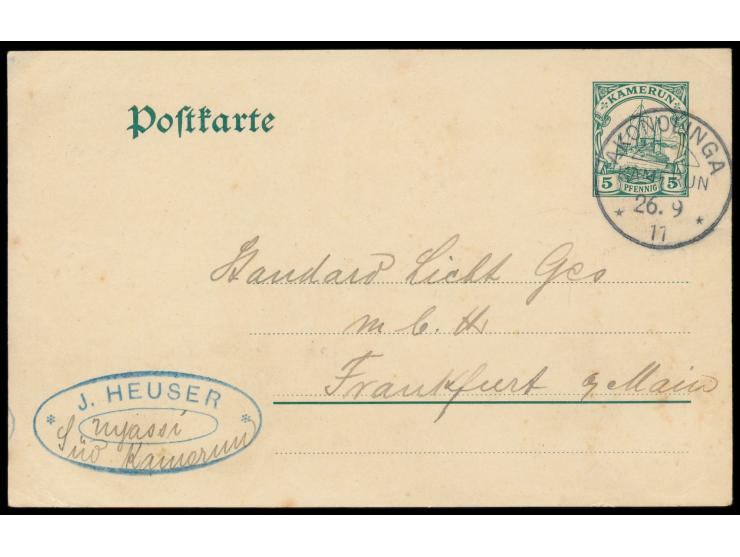 Postkarte
KAMERUN
5 PFENNIG 5
AKONOLINGA
KAMERUN
26. 9
11
Standard Licht Ges
m. b. H.
Frankfurt a/Main
J. HEUSER
Nyassi
Süd Kamerun